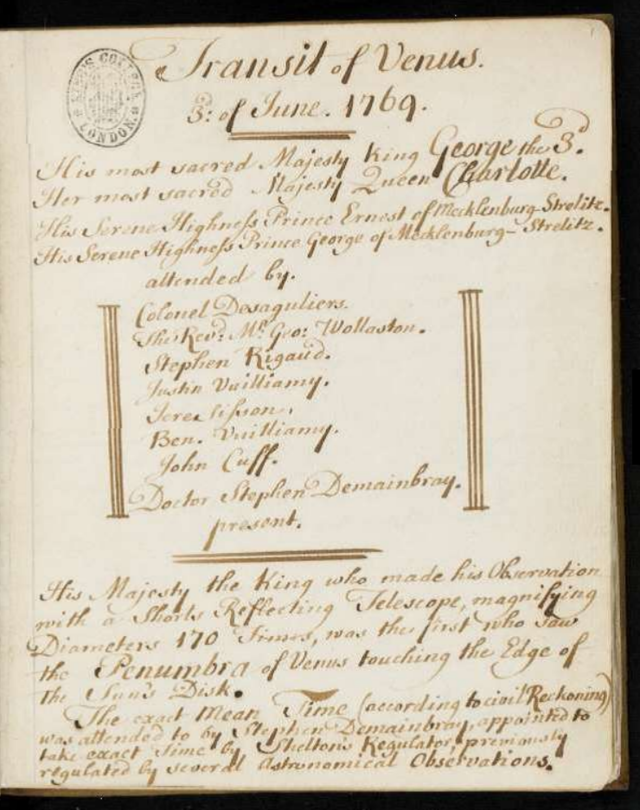 KING'S COLLEGE LONDON
Transit of Venus.
3: of June. 1769.
His most sacred Majesty King George the 3.d
Her most sacred Majesty Queen Charlotte.
His Serene Highness Prince Ernest of Mecklenburg-Strelitz.
His Serene Highness Prince George of Mecklenburg-Strelitz.
attended by.
Colonel Desaguliers.
The Rev:d Mr. Geo: Wollaston.
Stephen Rigaud.
Justin Vuilliamy.
Jere Sisson.
Ben. Vuilliamy.
John Cuff.
Doctor Stephen Demainbray.
present.
His Majesty the King who made his Observation
with a Shorts Reflecting Telescope, magnifying
Diameters 170 Times, was the first who saw
the Penumbra of Venus touching the Edge of
the Sun's Disk.
The exact Mean Time (according to civil Reckoning)
was attended to by Stephen Demainbray, appointed to
take exact Time by Shelton's Regulator, previously
regulated by several Astronomical Observations.